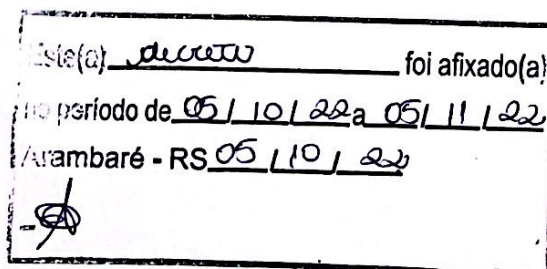 Este(a) decreto foi afixado(a)
no período de 05/10/22 a 05/11/22
Arambaré - RS 05/10/22